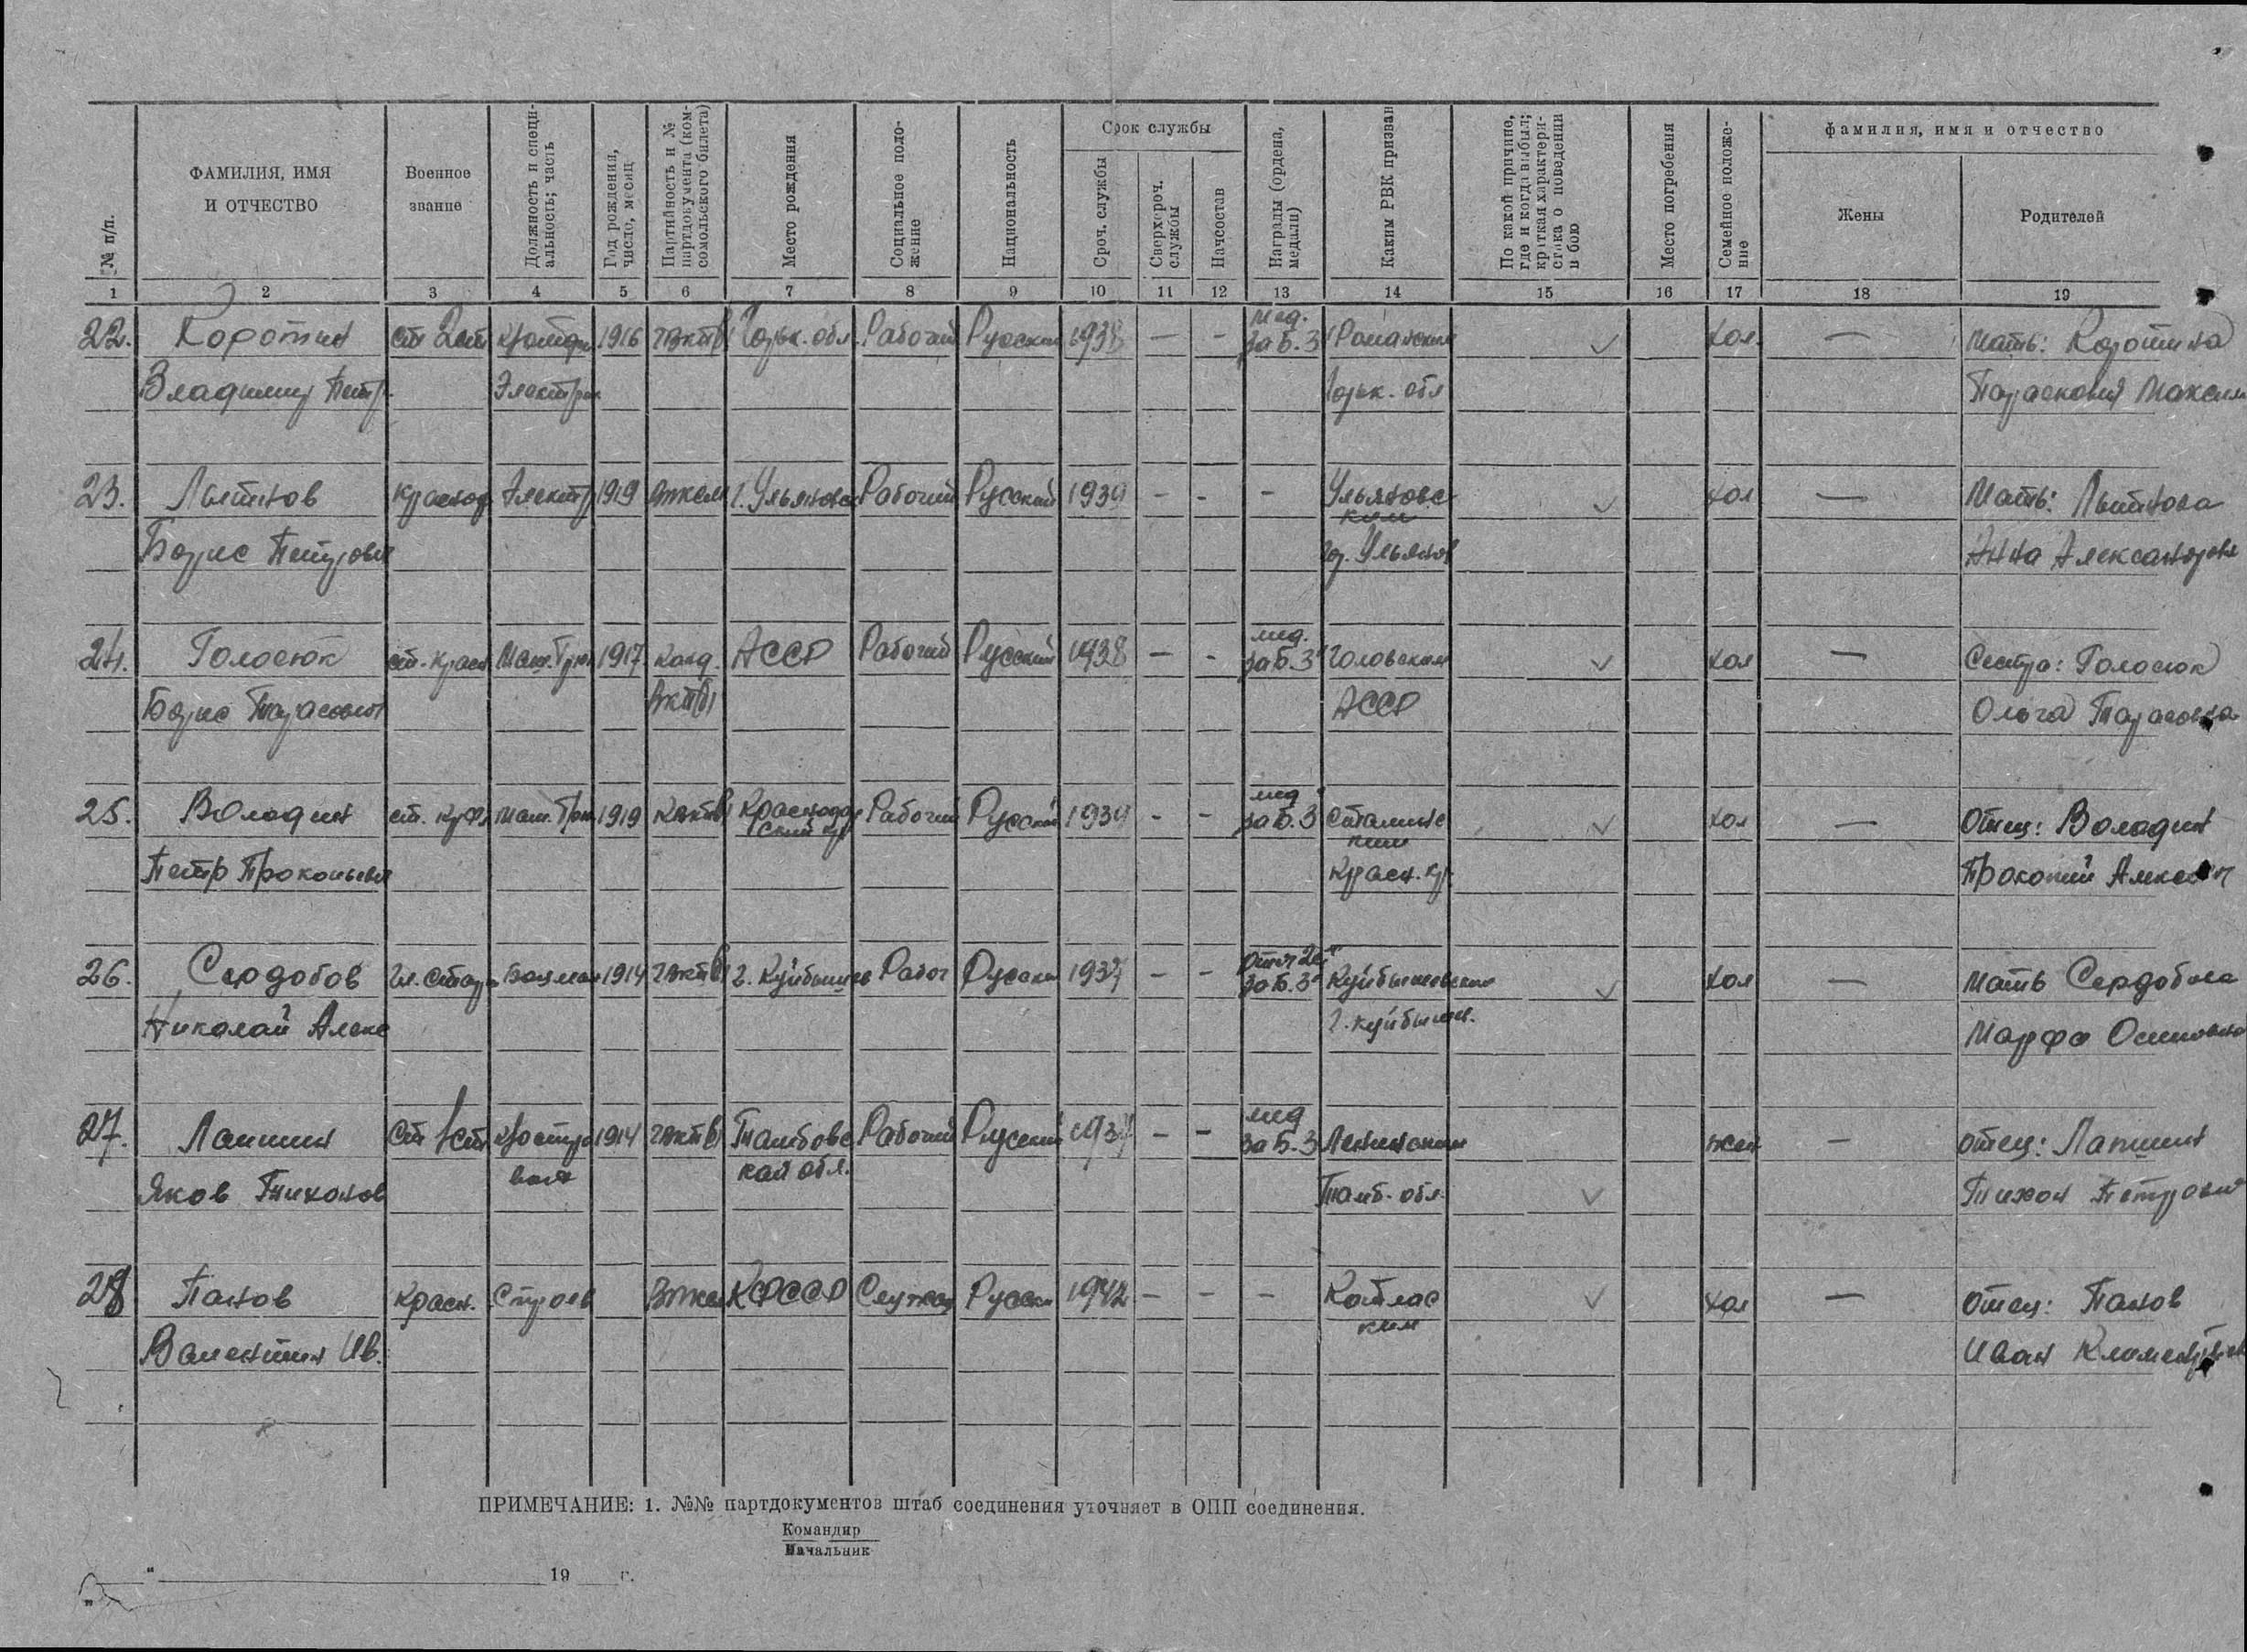 № п/п. ФАМИЛИЯ, ИМЯ И ОТЧЕСТВО Военное звание Должность и специ-альность; часть Год рождения, число, месяц Партийность и № партдокумента (ком-сомольского билета) Место рождения Социальное поло-жение Национальность Срок службы Сроч. службы Сверхсроч. службы Начсостав Награды (ордена, медали) Каким РВК призван По какой причине, где и когда выбыл; краткая характери-стика о поведении в бою Место погребения Семейное положе-ние фамилия, имя и отчество Жены Родителей
1 2 3 4 5 6 7 8 9 10 11 12 13 14 15 16 17 18 19
мед.
22. Коротин ст 2 ст 1916 Горьк. обл. Рабочий Русский 1938 — - за Б.З. ✓ хол — мать: Коротина
Владимир Петр. Электрик Горьк. обл Парасковия Максим
23. Лытнов краснофл Электр 1919 влксм г. Ульяновск Рабочий Русский 1939 - - - Ульяновс ✓ хол — Мать: Лытнова
ким
Борис Петрович гор. Ульянов Анна Александровн
мед.
24. Голосюк ст. красн Маш. Трюм 1917 канд. АССР Рабочий Русский 1938 — - за Б.З" ✓ хол — Сестра: Голосюк
Борис Тарасович ВКП(б) АССР Ольга Тарасовна
мед
25. Володин ст. кр.ф. маш. Трюм 1919 Краснодар Рабочий Русский 1939 - - за Б.З сталинс ✓ хол — Отец: Володин
ский кр ким
Петр Прокопьевич Красн. кр. Прокопий Алексеевич
26. Сердобов Гл. Старш Боцман 1914 г. Куйбышев Рабоч Русски 1937 - - за Б.З" Куйбышевским ✓ хол — мать Сердобова
Николай Алекс г. Куйбышев. Марфа Осиповна
мед
27. Лапшин Ст 1 ст 1914 Тамбовс Рабочий Русский 1937 - - за Б.З Ленинским жен — отец: Лапшин
кой обл.
Яков Тихонов Тамб. обл. ✓ Тихон Петрович
28 Панов Красн. Строев Влксм КФССР Служащ Русски 1942 - - - Котлас ✓ хол — отец: Панов
ким
Валентин Ив. Иван Климентьев
ПРИМЕЧАНИЕ: 1. №№ партдокументов штаб соединения уточняет в ОПП соединения.
Командир
Начальник
„ “ 19 г.